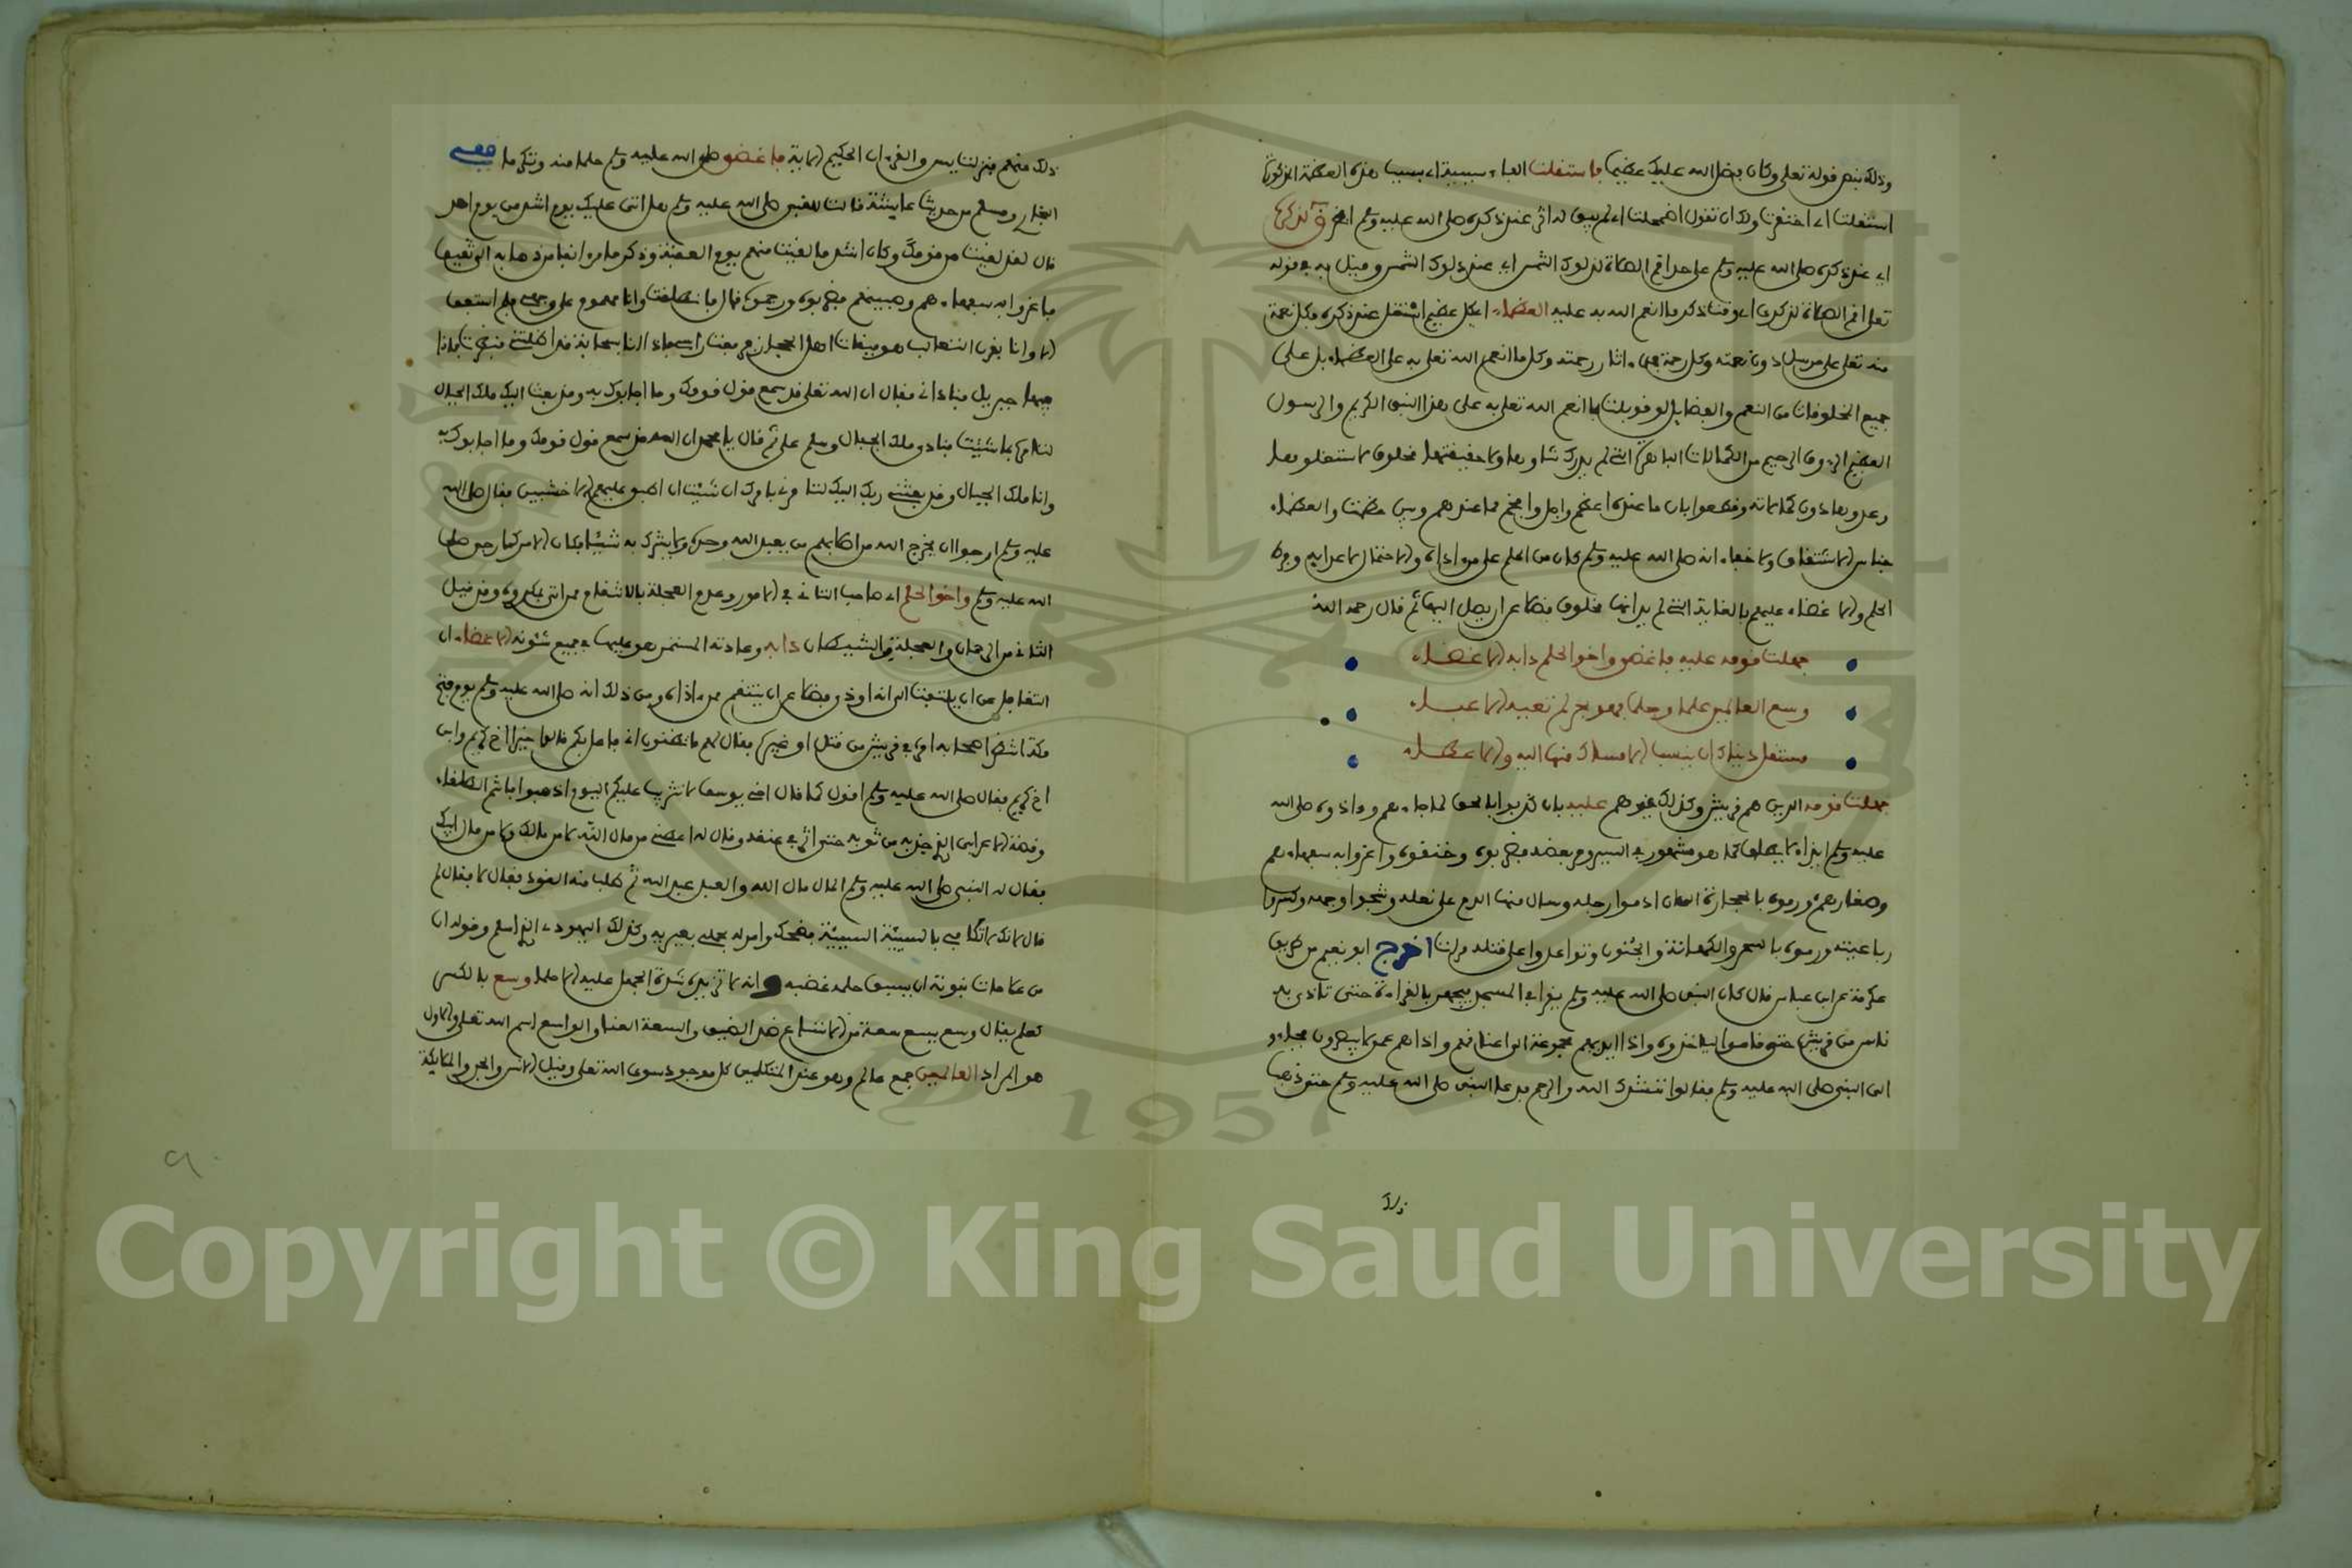 وذلك بنص قوله تعلى وكان فضل الله عليك عظيما فاستقلت الفاء سببية اي بسبب هذه العظمة المذكورة
استقلت اي احتقرت ولك ان تقول اضمحلت اي لم يبق له اثر عند ذكره صلى الله عليه وسلم الفخر لذكره
اي عند ذكره صلى الله عليه وسلم على حد اقم الصلاة لدلوك الشمس اي عند دلوك الشمس وقيل به في قوله
تعلى اقم الصلاة لذكري اي وقت ذكر ما انعم الله به عليه العظماء اي كل عظيم استقل عند ذكره فكل نعمة
منه تعلى على مرسل دون نعمته وكل رحمة فمن اثار رحمته وكل ما انعم الله تعلى به على العظماء بل على
جميع المخلوقات من النعم والفضايل لو قوبلت بما انعم الله تعلى به على هذا النبي الكريم والرسول
العظيم الرءوف الرحيم من الكمالات الباهرة التي لم يدرك شاوها ولا حقيقتها مخلوق لاستقلوها
وعدوها دون كمالاته وقطعوا بان ما عنده اعظم واجل وافخم مما عندهم وبين عظمت والعظماء
جناس الاشتقاق ولا خفاء انه صلى الله عليه وسلم كان من الحلم على من اذاه والاحتمال لاعرابه وجفاه
الحلم والاغضاء عليهم بالغاية التي لم ير انها مخلوق فضلا عن ان يصل اليها ثم قال رحمه الله
جهلت قومه عليه فاغضى واخو الحلم دابه الاغضاء
وسع العالمين علما وحلما فهو بحر لم تعيه الاعباء
مستقل دنياك ان ينسب الامساك منها اليه والاعطاء
جهلت قومه الذين هم قريش وكذلك غيرهم عليه بان كذبوا بالحق لما جاءهم وءاذوه صلى الله
عليه وسلم ايذاء لا يطاق كما هو مشهور في السير وعن بعضه فضربوه وخنقوه واغروا به سفهاءهم
وصغارهم ورموه بالحجارة الى ان ادموا رجله وسال منها الدم على نعله وشجوا وجهه وكسروا
رباعيته ورموه بالسحر والكهانة والجنون وتواعدوا على قتله مرات اخرج ابو نعيم من طريق
عكرمة عن ابن عباس قال كان النبي صلى الله عليه وسلم يقرا في المسجد فيجهر بالقراءة حتى تاذى به
ناس من قريش حتى قاموا لياخذوه واذا ايديهم مجموعة الى اعناقهم واذا هم عمي لا يبصرون فجاءوا
الى النبي صلى الله عليه وسلم فقالوا ننشدك الله والرحم فدعا النبي صلى الله عليه وسلم حتى ذهب
ذلك
ذلك عنهم فنزلت يس والقرءان الحكيم الاية فاغضى صلى الله عليه وسلم حلما منه وتكرما ففي
البخاري ومسلم من حديث عايشة قالت للنبي صلى الله عليه وسلم هل اتى عليك يوم اشد من يوم احد
قال لقد لقيت من قومك وكان اشد ما لقيت منهم يوم العقبة وذكر ما مر انفا من ذهابه الى ثقيف
فاغروا به سفهاءهم وصبيتهم فضربوه ورجموه قال فانطلقت وانا مهموم على وجهي فلم استفق
الا وانا بقرن الثعالب هو ميقات اهل نجد فرفعت راسي فاذا انا بسحابة قد اظلتني فنظرت فاذا
فيها جبريل فناداني فقال ان الله تعلى قد سمع قول قومك وما اجابوك به وقد بعث اليك ملك الجبال
لتامره بما شئت فنادى ملك الجبال وسلم علي ثم قال يا محمد ان الله قد سمع قول قومك وما اجابوك به
وانا ملك الجبال وقد بعثني ربك اليك لتامرني بامرك ان شئت ان اطبق عليهم الاخشبين فقال صلى الله
عليه وسلم ارجوا ان يخرج الله من اصلابهم من يعبد الله وحده ولا يشرك به شيئا فكان الامر كما رجى صلى
الله عليه وسلم واخو الحلم اي صاحب التاني في الامور وعدم العجلة بالانتقام ممن اتى بمكروه وقد قيل
التاني من الرحمان والعجلة من الشيطان دابه وعادته المستمر هو عليها في جميع شئونه الاغضاء اي
التغافل عن ان يلتفت الى انه اوذي فضلا عن ان ينتقم ممن ءاذاه ومن ذلك انه صلى الله عليه وسلم يوم فتح
مكة انتظر اصحابه امره في قريش من قتل او غيره فقال لهم ما تظنون اني فاعل بكم قالوا خيرا اخ كريم وابن
اخ كريم فقال صلى الله عليه وسلم اقول كما قال اخي يوسف لا تثريب عليكم اليوم اذهبوا فانتم الطلقاء
وقصة الاعرابي الذي جذبه من ثوبه حتى اثر في عنقه وقال له اعطني من مال الله لا من مالك ولا من مال ابيك
فقال له النبي صلى الله عليه وسلم المال مال الله والعبد عبد الله ثم طلب منه القود فقال لا فقال لم
قال لانك لا تكافي بالسيئة السيئة فضحك وامر له بحملي بعيريه وكذلك اليهودي الذي اسلم وقوله ان
من علامات نبوته ان يسبق حلمه غضبه وانه لا تزيده شدة الجهل عليه الا حلما وسع بالكسر
كعلم يقال وسع يسع سعة من الاتساع ضد الضيق والسعة الغنا والواسع اسم الله تعلى والاول
هو المراد العالمين جمع عالم وهو عند المتكلمين كل موجود سوى الله تعلى وقيل الانس والجن والملايكة
٩٠
1957
Copyright © King Saud University